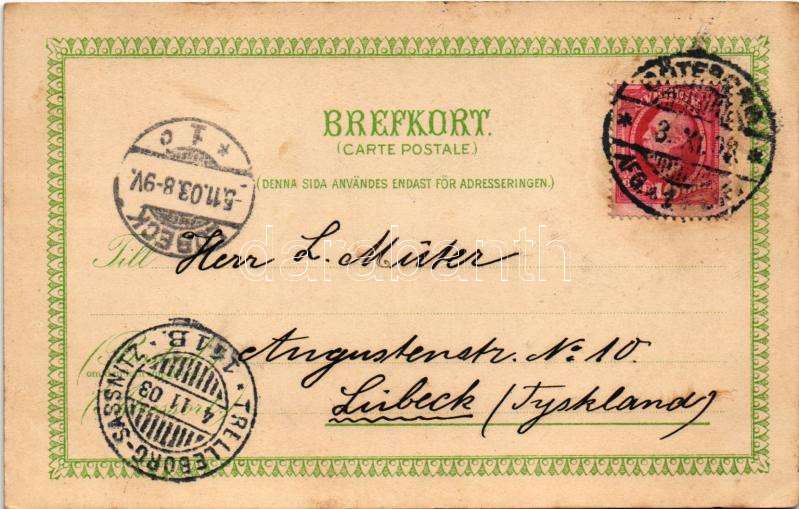 BREFKORT.
(CARTE POSTALE.)
(DENNA SIDA ANVÄNDES ENDAST FÖR ADRESSERINGEN.)
LÜBECK
5.11.03.8-9V.
* 1 c
GÖTEBORG
3. XI.
Till Herr L. Müter
Angustenstr. No 10.
Lübeck (Tyskland)
TRELLEBORG-SASSNITZ
4 11 03
darabanth